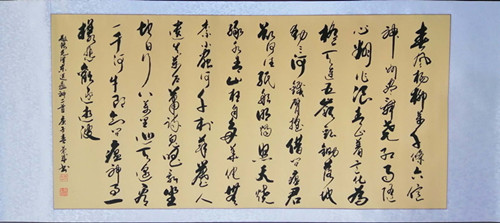 春风杨柳万千条六亿
神州尽舜尧红雨随
心翻作浪青山着意化为
桥天连五岭银锄落地
动三河铁臂摇借问瘟君
欲何往纸船明烛照天烧
绿水青山枉自多华佗无
奈小虫何千村薜荔人
遗矢万户萧疏鬼唱歌坐
地日行八万里巡天遥看
一千河牛郎欲问瘟神事一
样悲欢逐逝波
毛泽东送瘟神二首庚子春书